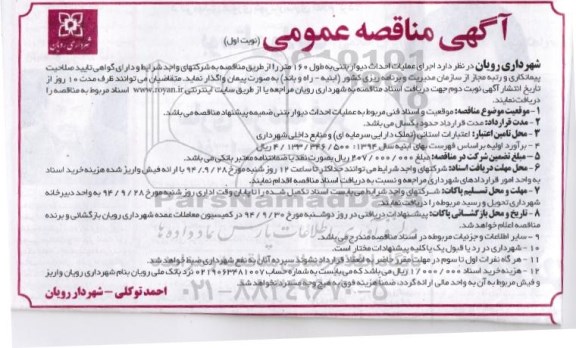 آگهی مناقصه عمومی (نوبت اول)
شهرداری رویان
شهرداری رویان در نظر دارد اجرای عملیات احداث دیوار بتنی به طول ۱۶۰ متر را از طریق مناقصه به شرکتهای واجد شرایط و دارای گواهی تایید صلاحیت
پیمانکاری و رتبه مجاز از سازمان مدیریت و برنامه ریزی کشور (ابنیه - راه و باند) به صورت پیمان واگذار نماید. متقاضیان می توانند ظرف مدت ۱۰ روز از
تاریخ انتشار آگهی نوبت دوم جهت دریافت اسناد مناقصه به شهرداری رویان مراجعه یا از طریق سایت اینترنتی www.royan.ir اسناد مربوط به مناقصه را
دریافت نمایند.
۱ - موقعیت موضوع مناقصه: موقعیت و اسناد فنی مربوط به عملیات احداث دیوار بتنی ضمیمه پیشنهاد مناقصه می باشد.
۲ - مدت قرارداد: مدت قرارداد حدود یکسال می باشد.
۳ - محل تامین اعتبار: اعتبارات استانی (تملک دارایی سرمایه ای) و منابع داخلی شهرداری
۴ - برآورد اولیه براساس فهرست بهای ابنیه سال ۱۳۹۴: ۴/۱۳۳/۳۴۶/۵۰۰ ریال
۵ - مبلغ تضمین شرکت در مناقصه: مبلغ ۲۰۷/۰۰۰/۰۰۰ ریال بصورت نقد یا ضمانتنامه معتبر بانکی می باشد.
۶ - محل مهلت دریافت اسناد: شرکتهای واجد شرایط می توانند حداکثر تا ساعت ۱۲ روز شنبه مورخ ۹۴/۹/۲۸ با ارائه فیش واریز شده هزینه خرید اسناد
به واحد امور قراردادهای شهرداری مراجعه و نسبت به دریافت اسناد مناقصه اقدام نمایند.
۷ - مهلت و محل تسلیم پاکات: شرکتهای واجد شرایط می بایست اسناد تکمیل شده را تا پایان وقت اداری روز شنبه مورخ ۹۴/۹/۲۸ به واحد دبیرخانه
شهرداری تحویل و رسید مربوطه را دریافت نمایند.
۸ - تاریخ و محل بازگشائی پاکات: پیشنهادات دریافتی در روز دوشنبه مورخ ۹۴/۹/۳۰ در کمیسیون معاملات عمده شهرداری رویان بازگشائی و برنده
مناقصه اعلام خواهد شد.
۹ - سایر اطلاعات و جزئیات مربوطه در اسناد مناقصه مندرج می باشد.
۱۰ - شهرداری در رد یا قبول یک یا کلیه پیشنهادات مختار است.
۱۱ - هر گاه نفرات اول تا سوم در مهلت مقرر حاضر به انعقاد قرارداد نشوند سپرده آنان به نفع شهرداری ضبط خواهد شد.
۱۲ - هزینه خرید اسناد ۱/۰۰۰/۰۰۰ ریال می باشد که می بایست به شماره حساب ۰۲۱۹۰۶۳۳۸۱۰۰۷ نزد بانک ملی رویان بنام شهرداری رویان واریز
و فیش مربوط به آن به واحد مالی ارائه گردد، ضمنا هزینه فوق به هیچ وجه مسترد نخواهد شد.
احمد توکلی - شهردار رویان